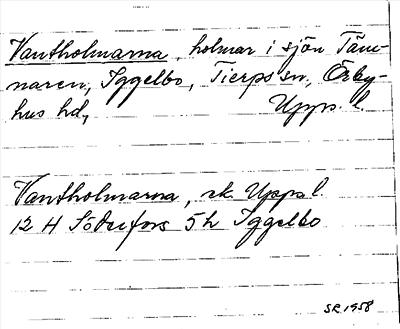 Vantholmarna, holmar i sjön Täm-
naren, Iggelbo, Tierps sn, Örby-
hus hd, Upps. l.
Vantholmarna, ek. Upps l.
12 H Söderfors 5h Iggelbo
S.R. 1958